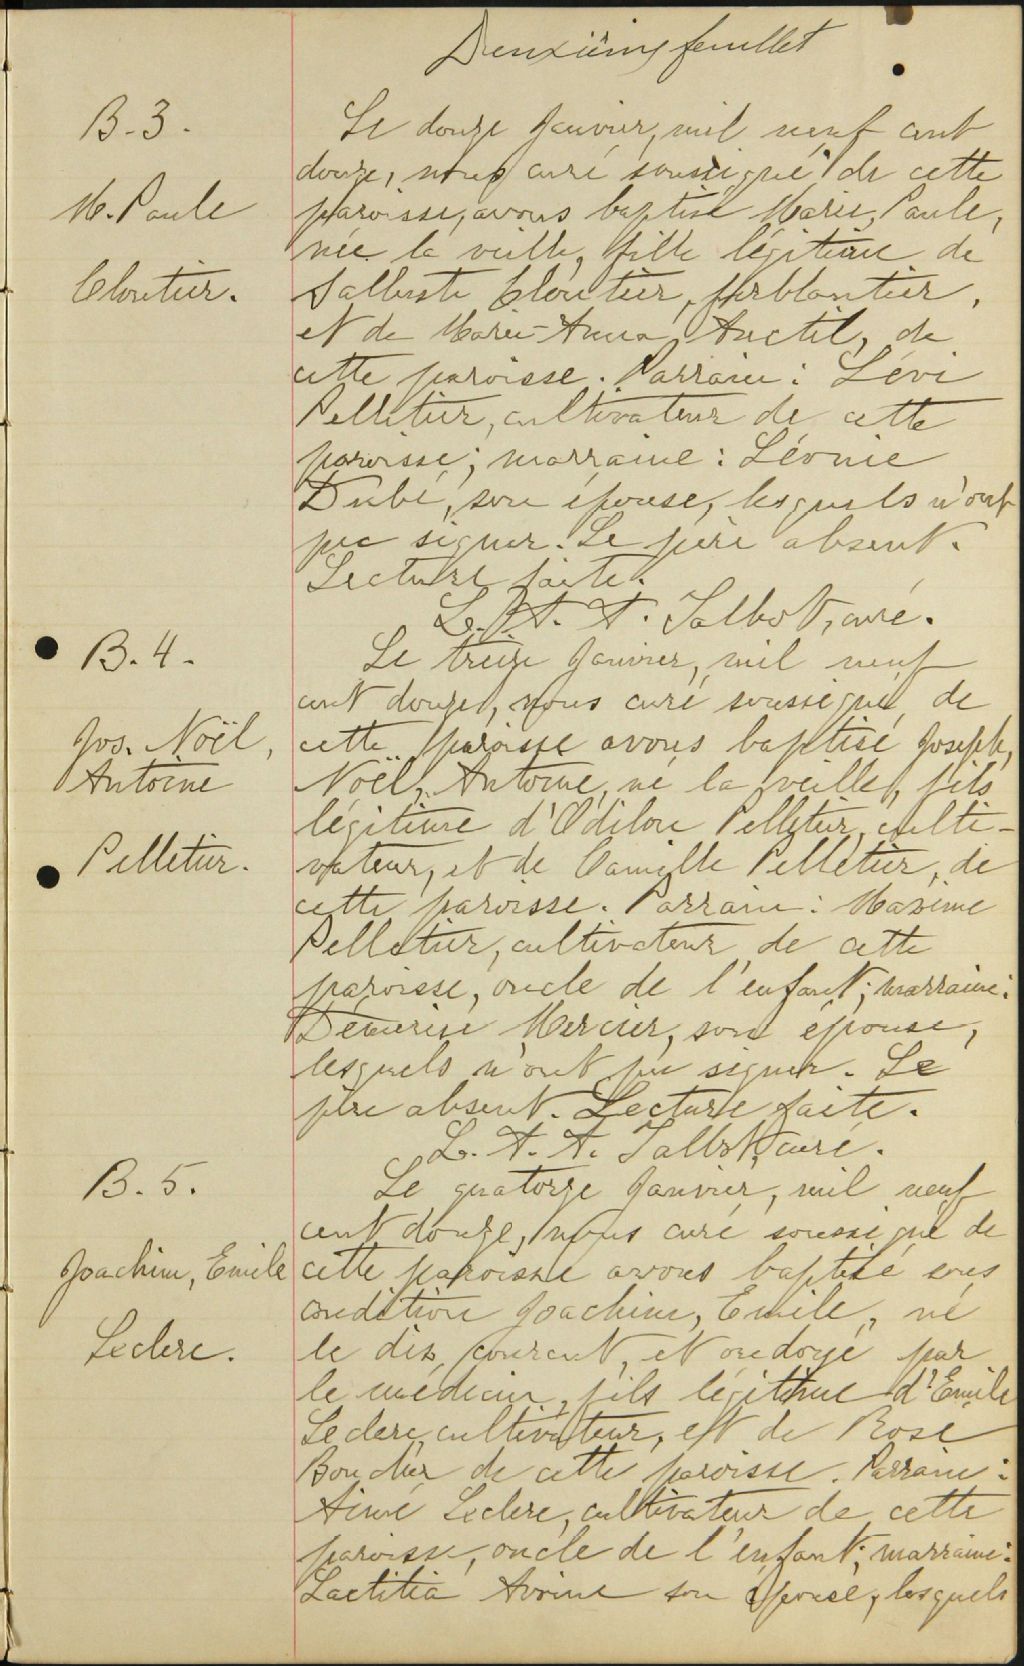 Deuxième feuillet
B-3.
M. Paule
Cloutier.
Le douze Janvier, mil neuf cent
douze, nous curé soussigné de cette
paroisse, avons baptisé Marie, Paule,
née la veille, fille légitime de
Salluste Cloutier, ferblantier,
et de Marie-Anna Anctil, de
cette paroisse. Parrain: Lévi
Pelletier, cultivateur de cette
paroisse; marraine: Léonie
Dubé, son épouse, lesquels n'ont
pu signer. Le père absent.
Lecture faite.
L. A. A. Talbot, curé.
B. 4.
Jos. Noël,
Antoine
Pelletier.
Le treize Janvier, mil neuf
cent douze, nous curé soussigné de
cette paroisse avons baptisé Joseph,
Noël, Antoine, né la veille, fils
légitime d'Odilon Pelletier, culti-
vateur, et de Camille Pelletier, de
cette paroisse. Parrain: Maxime
Pelletier, cultivateur de cette
paroisse, oncle de l'enfant; marraine:
Démerise Mercier, son épouse,
lesquels n'ont pu signer. Le
père absent. Lecture faite.
L. A. A. Talbot, curé.
B. 5.
Joachim, Emile
Leclerc.
Le quatorze Janvier, mil neuf
cent douze, nous curé soussigné de
cette paroisse avons baptisé sous
condition Joachim, Emile, né
le dix courant, et ondoyé par
le médecin, fils légitime d'Emile
Leclerc, cultivateur, et de Rose
Boucher de cette paroisse. Parrain:
Aimé Leclerc, cultivateur de cette
paroisse, oncle de l'enfant; marraine:
Laetitia Avoine son épouse, lesquels